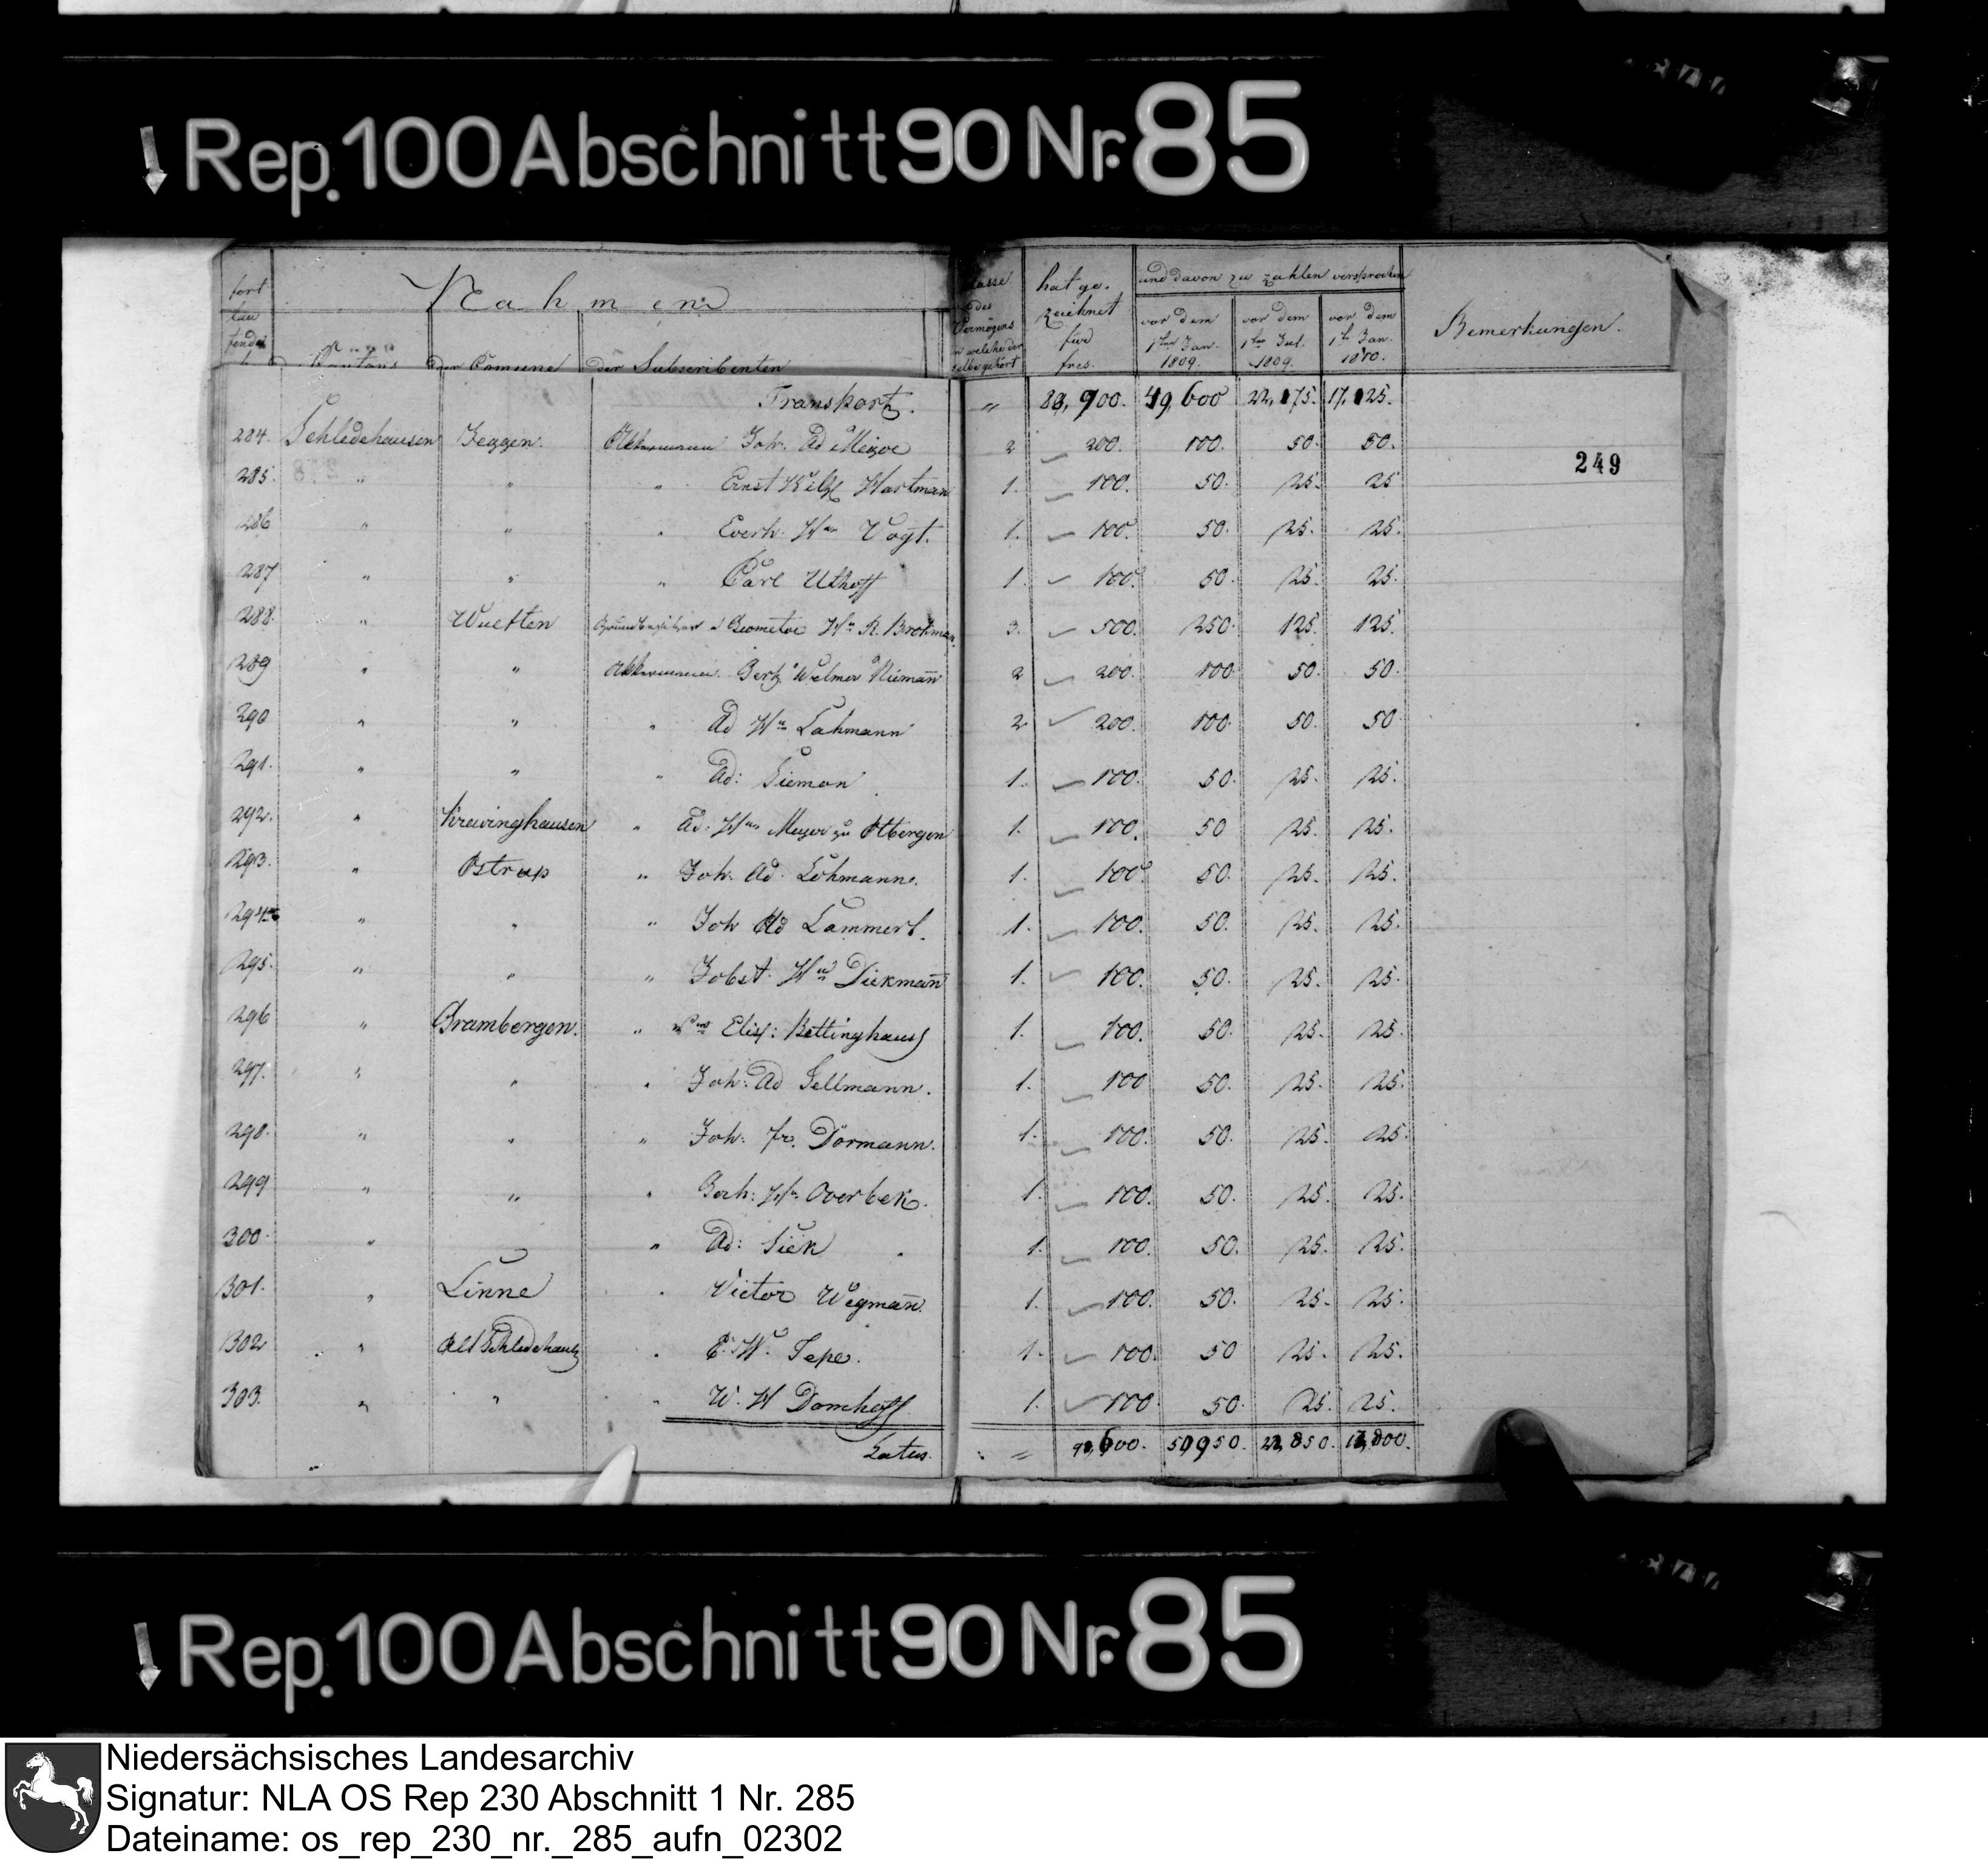 Rep. 100 Abschnitt 90 Nr. 85
fort lau fende Nahmen Klasse des Vermögens in welche der selbe gehört hat ge. zeichnet für frcs. und davon zu zahlen versprochen Bemerkungen.
Cantons der Comune der Subscribenten vor dem 1ten Jan. 1809. vor dem 1ten Jul. 1809. vor dem 1ten Jan. 1810.
Transport. " 49,600 17,125.
249
284. Schledehausen Jeggen. Akkermann Joh. Ad Meyer 2 200. 100. 50. 50.
285. " " " Ernst Hartman 1. 100. 50. 25. 25
286 " " " Everh. Wm Vogt. 1. 100. 50. 25. 25.
287 " " " Carl Uthoff 1. 100. 50. 25. 25.
288. " Wuelten Grundbesitzer u Geometer Wm R. Brokman 3. 500. 250. 125. 125.
289 " " Akkermann Welmer Niemann 2 200. 100. 50. 50.
290 " " " Ad Wm Lahmann 2 200. 100. 50. 50
291. " " " Ad: Siemon 1. 100. 50. 25. 25.
292. " Krevinghausen " Ad: Wm Meyer zu Ottbergen 1. 100. 50 25. 25.
293. " Ostrup " Joh. Ad. Lohmann. 1. 100. 50. 25. 25.
294 " " " Joh Ad Lammert. 1. 100. 50. 25. 25.
295. " " " Jobst. Wm Diekmann 1. 100. 50. 25. 25.
296 " Grambergen. " Elis: Bettinghaus 1. 100. 50. 25. 25.
297. " " " Joh: Ad Sellmann. 1. 100 50. 25. 25.
298. " " " Joh: fr. Dörmann. 1. 100. 50. 25. 25.
299 " " " Gerh: Wm Overbek. 1. 100. 50. 25. 25.
300. " " Ad: Siek 1. 100. 50. 25. 25.
301. " Linne " Victor Wegmann. 1. 100. 50. 25. 25.
302 " Alt Schledehaus " E. W. Sepe. 1. 100. 50 25. 25.
303. " " " W. H Domhoff 1. 100. 50. 25. 25.
Latus. "
Rep. 100 Abschnitt 90 Nr. 85
Niedersächsisches Landesarchiv
Signatur: NLA OS Rep 230 Abschnitt 1 Nr. 285
Dateiname: os_rep_230_nr._285_aufn_02302